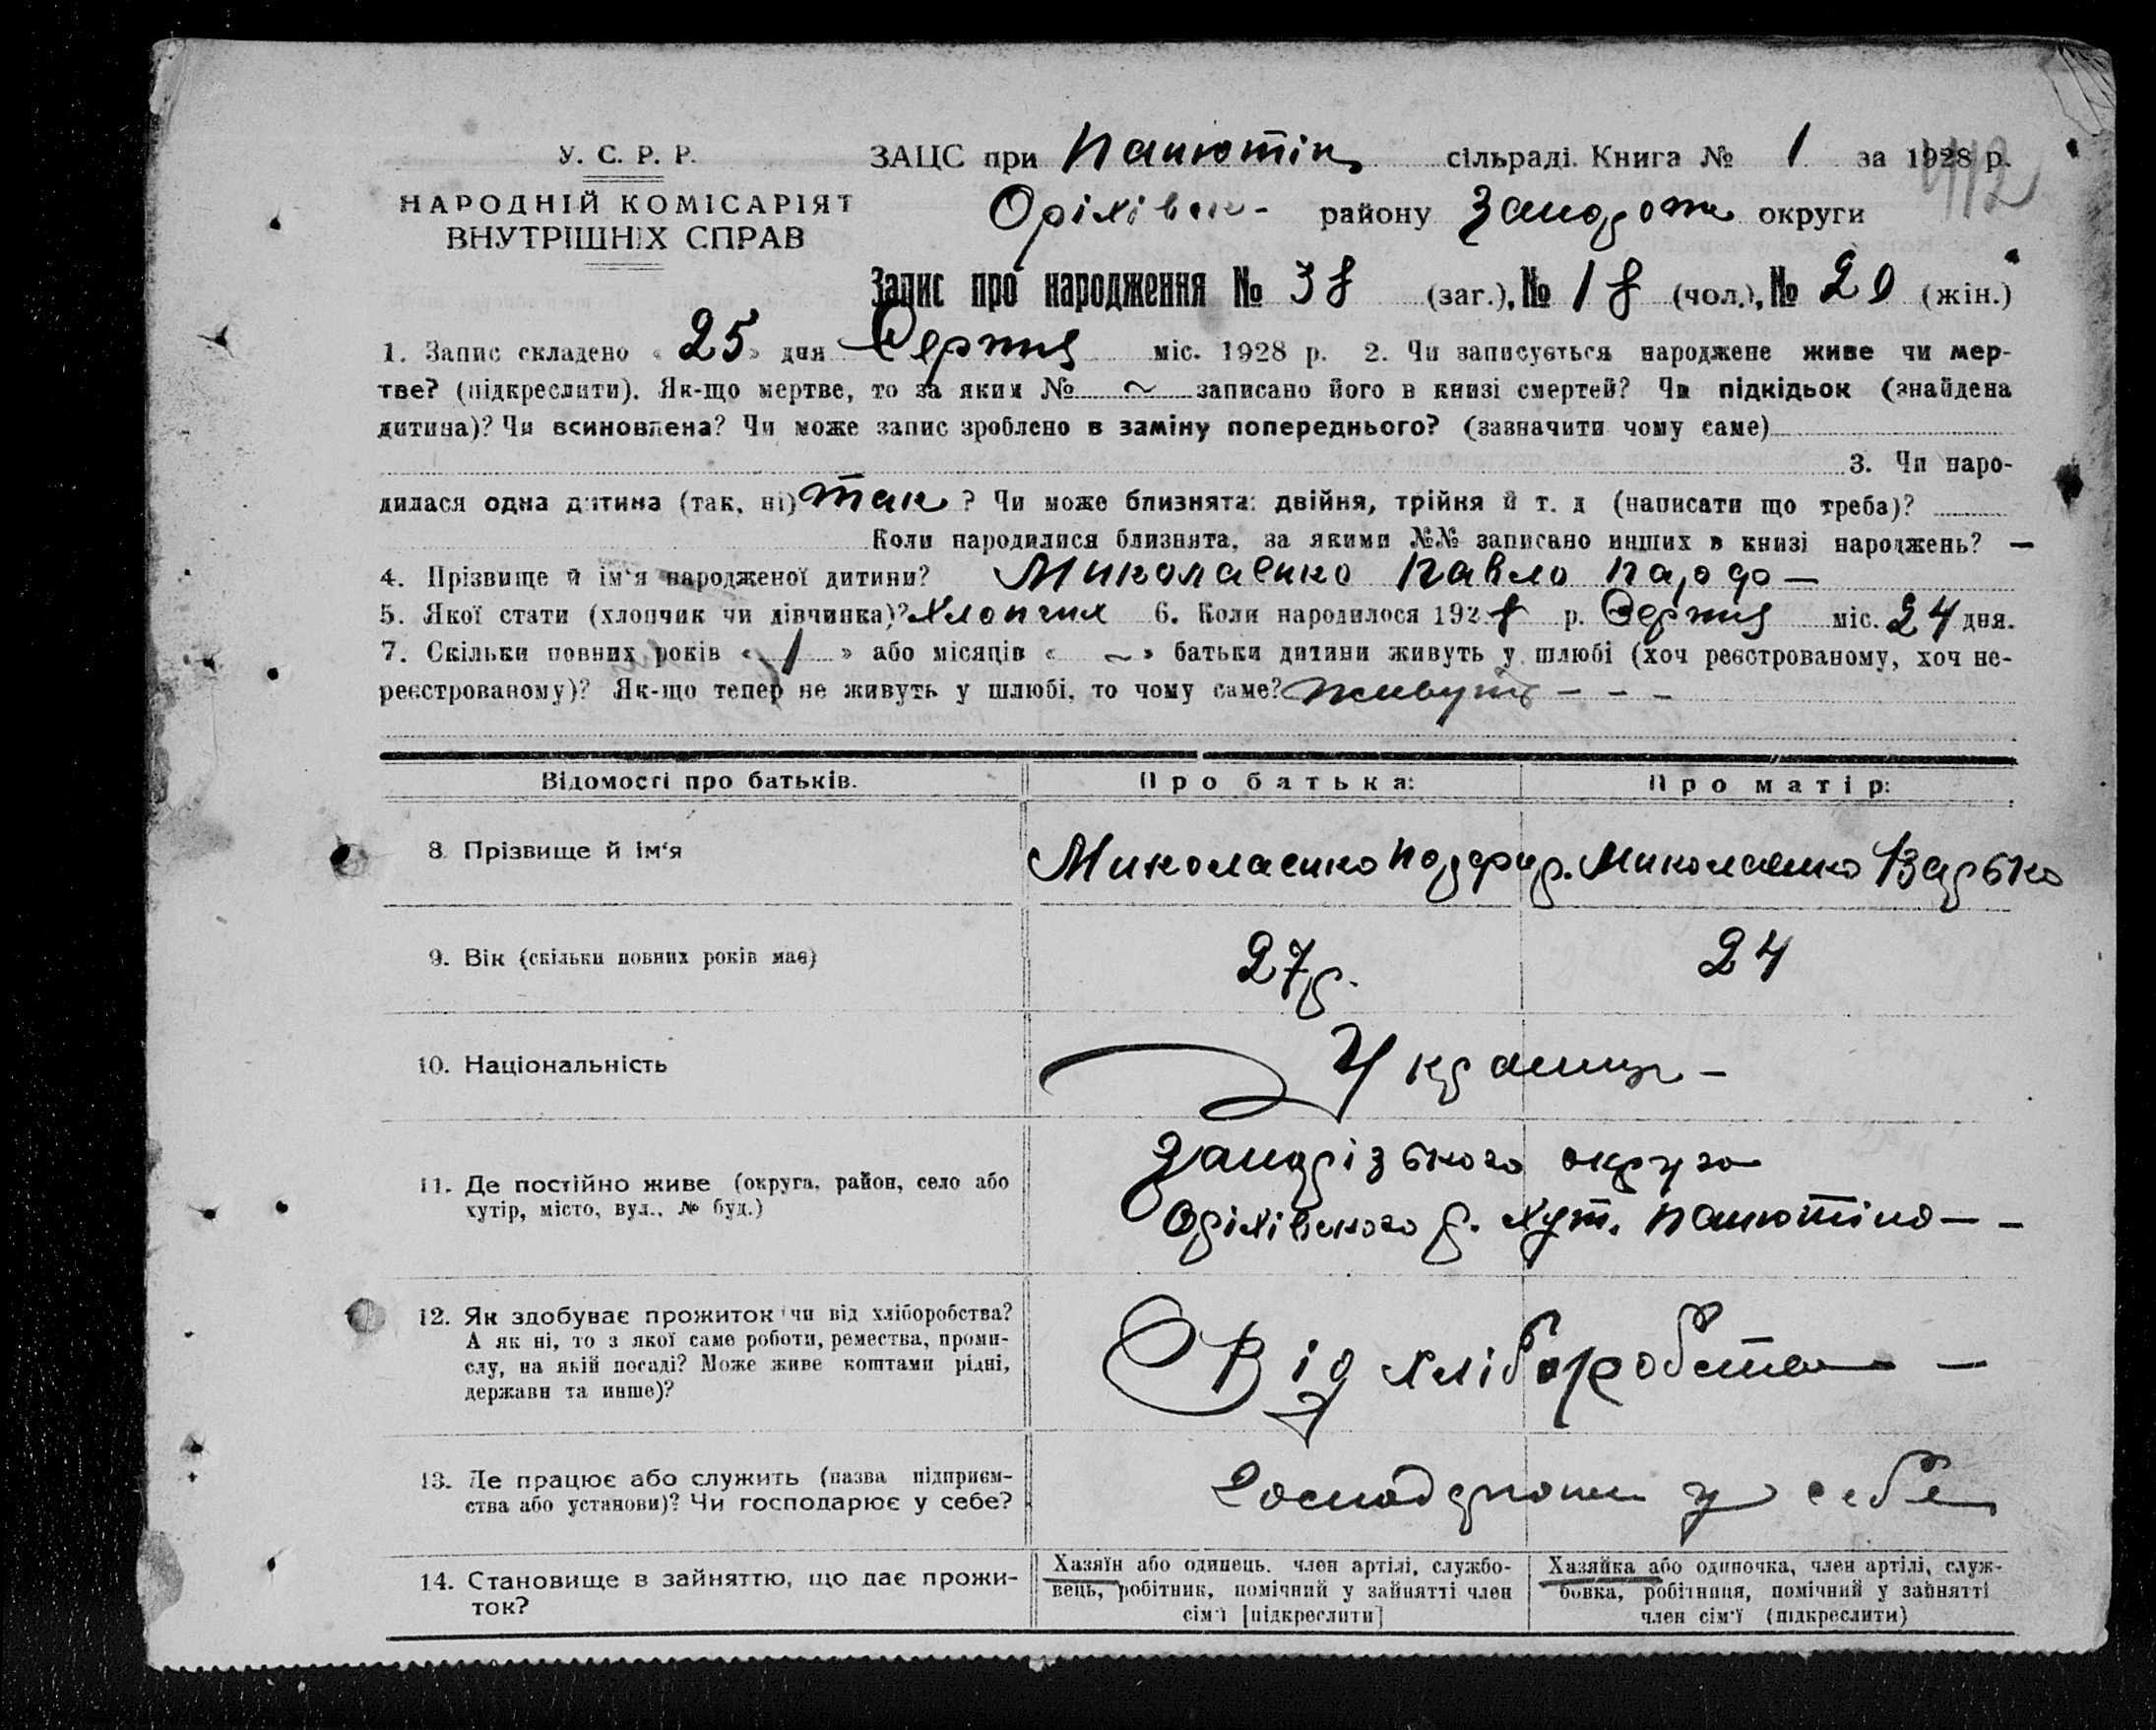 У. С. Р. Р.
НАРОДНІЙ КОМІСАРІЯТ
ВНУТРІШНІХ СПРАВ
ЗАЦС при Панютін сільраді. Книга № 1 за 1928 р.
412
Оріхівськ- району Запорож округи
Запис про народження № 38 (заг.), № 18 (чол.), № 20 (жін.)
1. Запис складено « 25 » дня Серпня міс. 1928 р. 2. Чи записується народжене живе чи мер-
тве? (підкреслити). Як-що мертве, то за яким № ~ записано його в книзі смертей? Чи підкідьок (знайдена
дитина)? Чи всиновлена? Чи може запис зроблено в заміну попереднього? (зазначити чому саме)
3. Чи наро-
дилася одна дитина (так, ні) так ? Чи може близнята: двійня, трійня й т. д (написати що треба)?
Коли народилися близнята, за якими №№ записано инших в книзі народжень? —
4. Прізвище й ім‘я народженої дитини? Миколаенко Павло
5. Якої стати (хлопчик чи дівчинка)? Хлопчик 6. Коли народилося 1928 р. Серпня міс. 24 дня.
7. Скільки повних років « 1 » або місяців « ~ » батьки дитини живуть у шлюбі (хоч реєстрованому, хоч не-
реєстрованому)? Як-що тепер не живуть у шлюбі, то чому саме? живуть – – –
Відомості про батьків. Про батька: Про матір:
8. Прізвище й ім‘я Миколаенко Порфир. Миколаенко Варька
9. Вік (скільки повних років має) 27 р. 24
10. Національність Украинц –
11. Де постійно живе (округа, район, село або
хутір, місто, вул., № буд.)
Запорізького округа
Оріхівского р. хут. Панютіно – –
12. Як здобуває прожиток чи від хліборобства?
А як ні, то з якої саме роботи, ремества, проми-
слу, на якій посаді? Може живе коштами рідні,
держави та инше)?
Від хліборобства –
13. Де працює або служить (назва підприєм-
ства або установи)? Чи господарює у себе?
у себе
14. Становище в зайняттю, що дає прожи-
ток?
Хазяїн або одинець, член артілі, службо-
вець, робітник, помічний у зайнятті член
сім‘ї [підкреслити]
Хазяйка або одиночка, член артілі, служ-
бовка, робітниця, помічний у зайнятті
член сім‘ї (підкреслити)